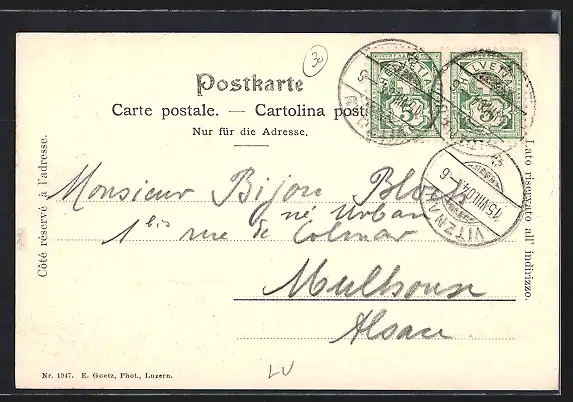 30
Postkarte
Carte postale. — Cartolina post
Nur für die Adresse.
Côté réservé à l'adresse.
Lato riservato all' indirizzo.
HELVETIA
5
HELVETIA
5
VITZNAU
15.VIII.04.-6
Monsieur Bijou Bloch
né Urban
1 bis rue de Colmar
Mulhouse
Alsace
Nr. 1947. E. Goetz, Phot., Luzern.
LU